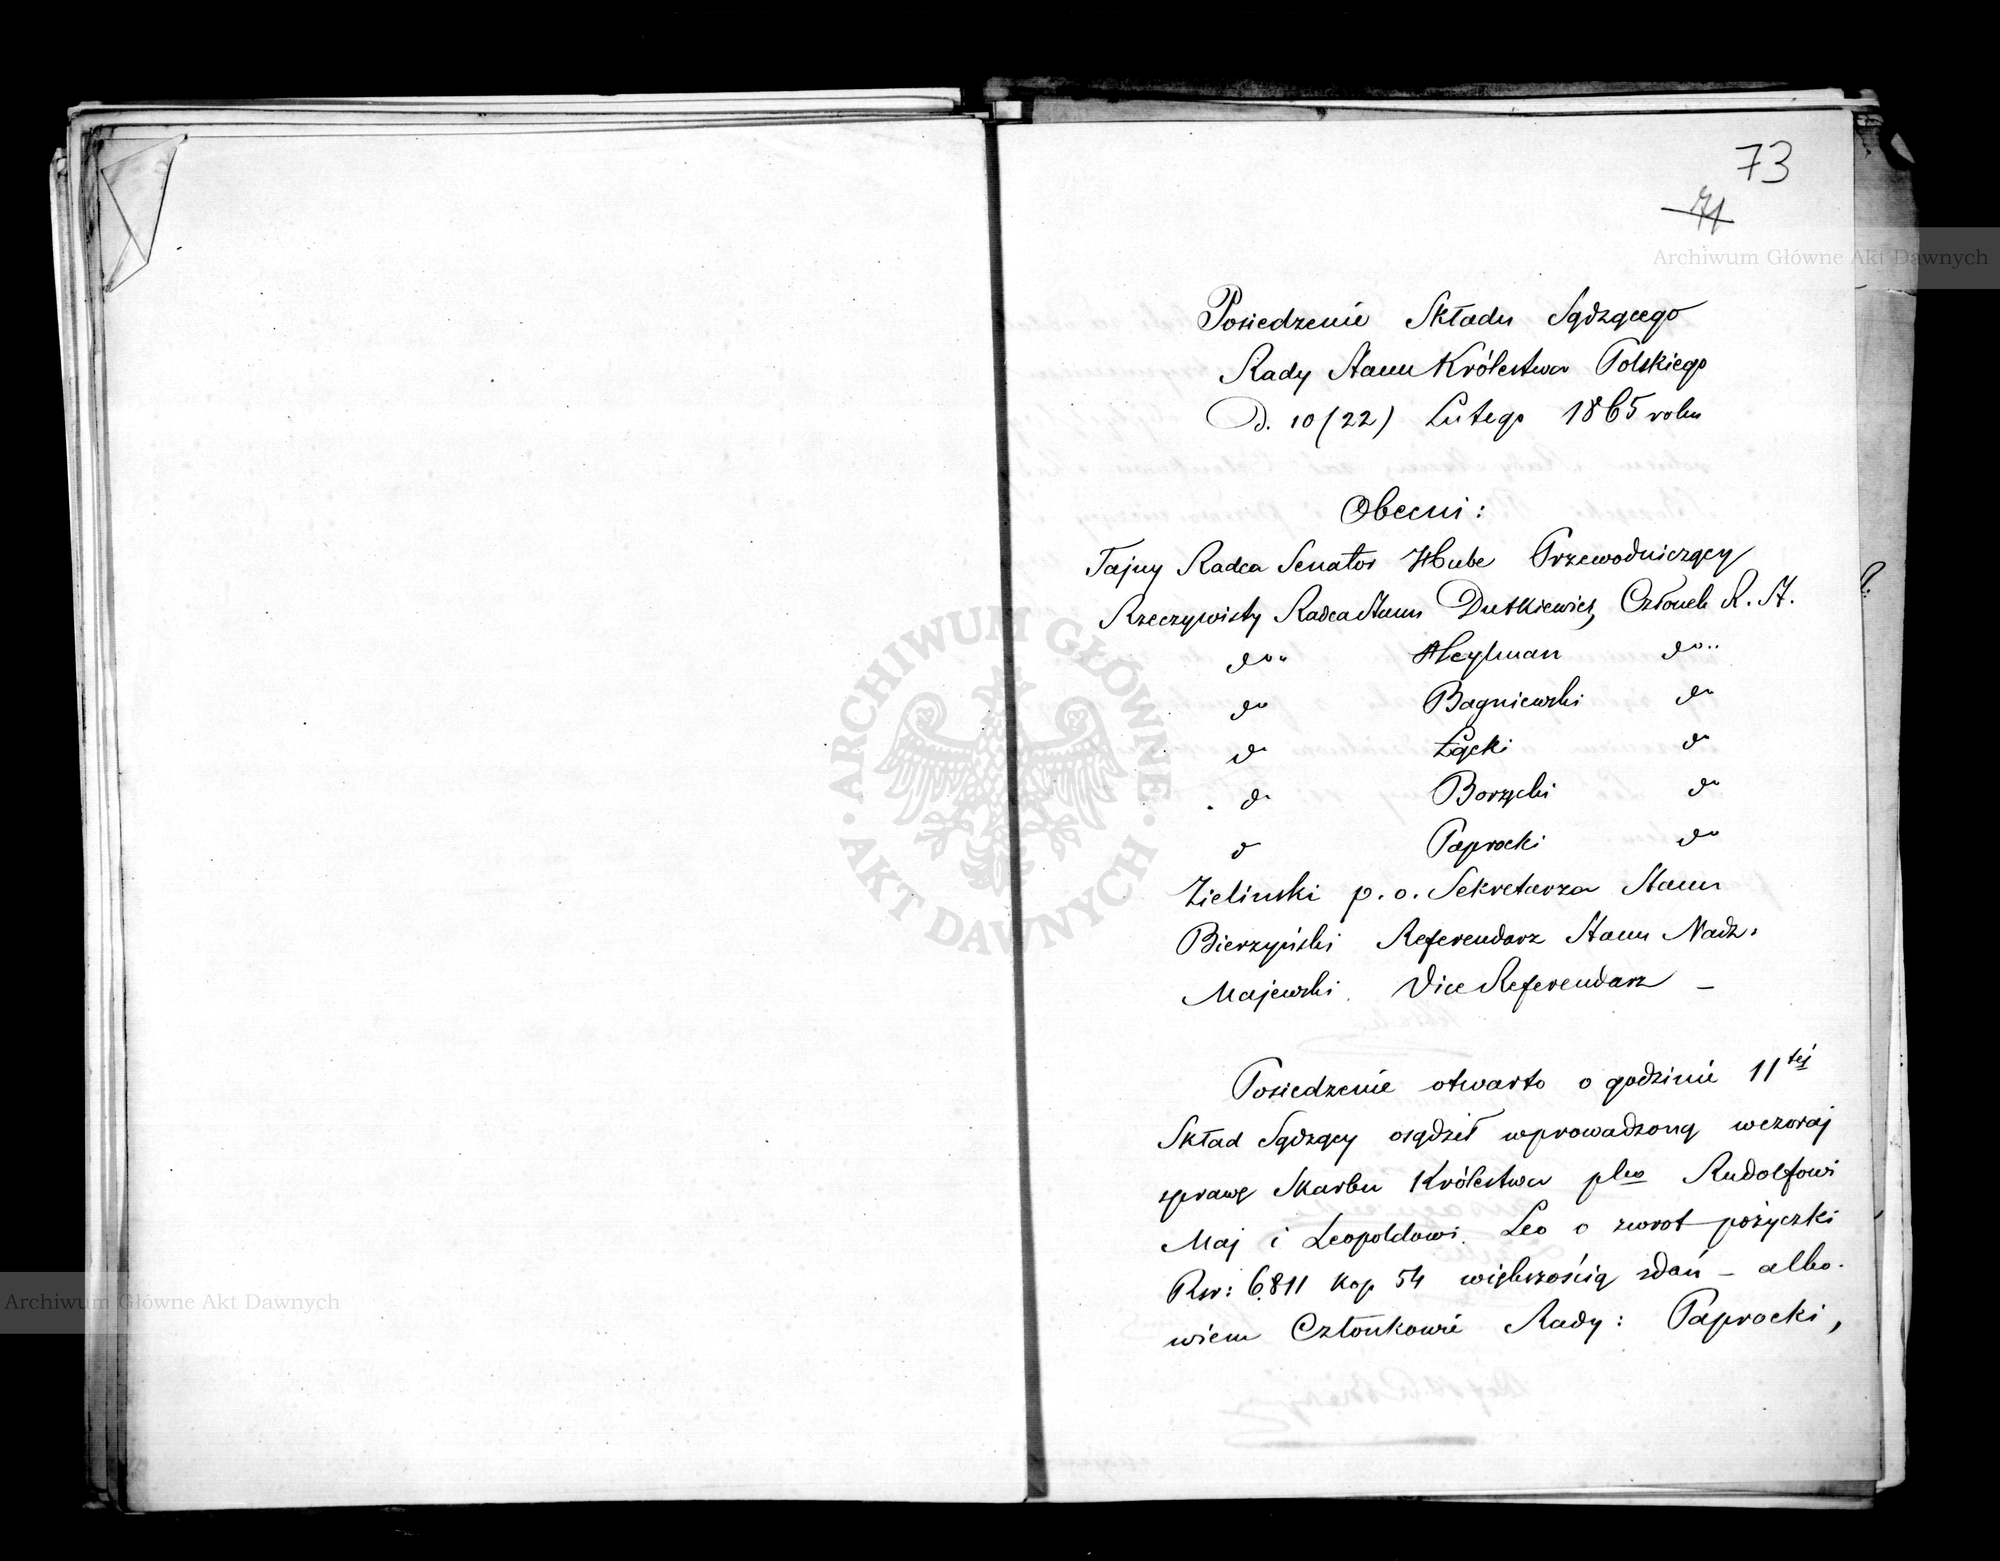 73
71
Archiwum Główne Akt Dawnych
Posiedzenie Składu Sądzącego
Rady Stanu Królestwa Polskiego
D. 10 (22) Lutego 1865 roku
Obecni:
Tajny Radca Senator Hube Przewodniczący
Rzeczywisty Radca Stanu Dutkiewicz, Członek R. St.
do" Heylman do"
do Bagniewski do
do Łącki do
do Borzęcki do
do Paprocki do
Zieliński p. o. Sekretarza Stanu
Bierzyński Referendarz Stanu Nadz.
Majewski Vice Referendarz —
Posiedzenie otwarto o godzinie 11tej
Skład Sądzący osądził wprowadzoną wczoraj
sprawę Skarbu Królestwa pko Rudolfowi
Maj i Leopoldowi Leo o zwrot pożyczki
Rsr: 6.811 kop 54 większością zdań – albo-
wiem Członkowie Rady: Paprocki,
ARCHIWUM GŁÓWNE · AKT DAWNYCH ·
Archiwum Główne Akt Dawnych